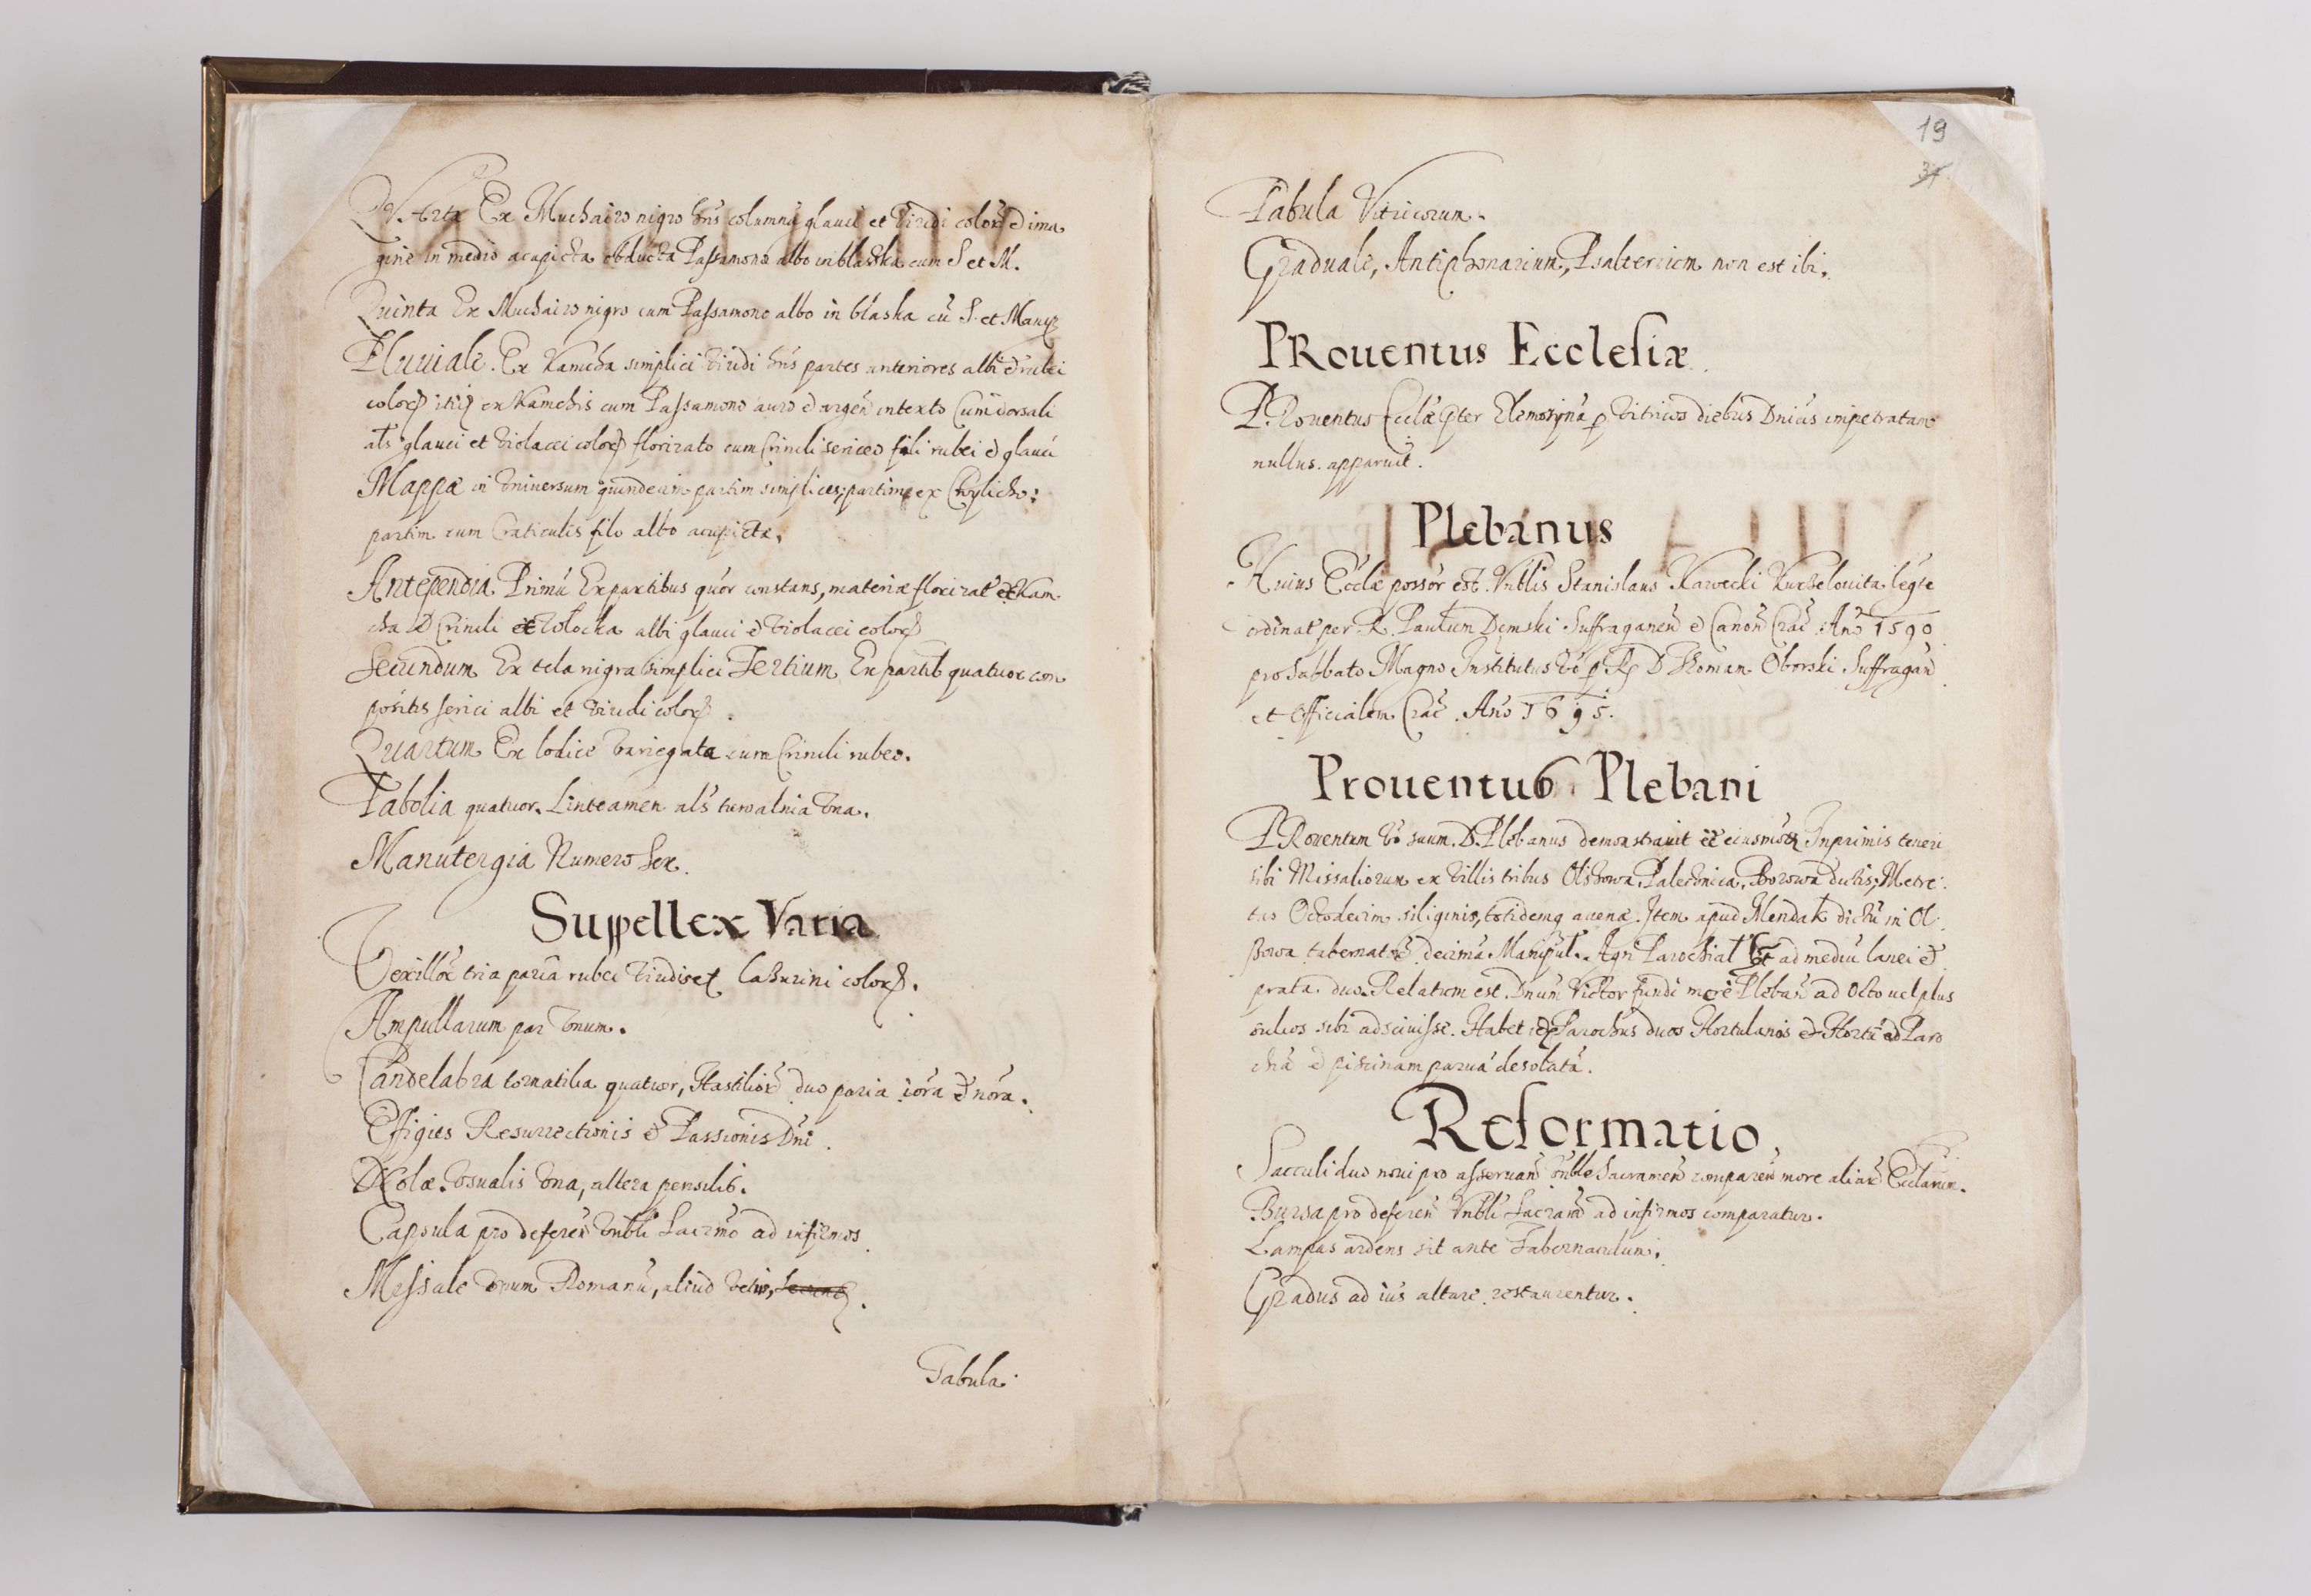 Quarta Ex Muchairo nigro hñs columnã glauci et viridi colorũ & ima
gine in medio acupicta obducta Passamono albo in blaska cum S et M.
Quinta Ex Muchairo nigro cum Passamono albo in blaska cũ S. et Manip
Pluuiale. Ex Kamcha simplici viridi hñs partes anteriores albi & rubei
color itid ex Kamchis cum Passamono auro & argeñ intexto Cum dorsali
als glauci et violacei color florizato cum Crinili sericeo fili rubei & glauci
Mappæ in vniversum quindecim partim simplices, partim ex Cwylicho:
partim cum Craticulis filo albo acupictæ,
Antependia Primũ Ex partibus quor constans, materiæ florizat ex Kam
cha & Crinili ex Wlocka albi glauci & violacei color
Secundum Ex tela nigra simplici Tertium Ex partib quatuor com
positis serici albi et viridi color.
Quartum Ex lodice variegata cum Crinili rubeo.
Tabolia quatuor. Linteamen als tuwalnia vna.
Manutergia Numero Sex.
Suppellex Varia
Vexillor tria paria rubei viridis et Lasurini color.
Ampullarum par vnum.
Candelabra tornatilia quatuor, Hastilior duo paria iora & nora.
Effigies Resurrectionis & Passionis Dni.
Nolæ. Vsualis vna, altera pensilis.
Capsula pro deferen Vnbli Sacrmo ad infirmos
Messale vnum Romanũ, aliud vetus,
Tabula
19
Tabula Vitricorum.
Graduale, Antiphonarium, Psalterium non est ibi.
PRouentus Ecclesiæ
PRouentus Ecclæ pter Elemosynã p vitricos diebus Dnicis impetratam
nullus apparuit.
Plebanus
Huius Ecclæ possor est Vnblis Stanislaus Karwecki Kurzelouita legte
ordinat per R. Paulum Dęmski Suffraganeũ & Canoñ Crac. Año 1590
pro Sabbato Magno Institutus vo p R D Thoman Oborski Suffragañ
et Officialem Crac. Año 1695.
Prouentus Plebani
PRouentum vo suum D. Plebanus demonstrauit ee eiusmodi Inprimis teneri
sibi Missaliorum ex villis tribus Olszowa, Palecznica, Borowa dictis, Metre
tas Octodecim siliginis, totidemq auenæ. Item apud Mendak dictũ in Ol
szowa tabernatoř decimã Manipul. Agri Parochial st ad mediũ lanei &
prata duo. Relatum est Dnum Victor fundi more Plebañ ad Octo uel plus
sulcos sibi adsciuisse. Habet idē Parochus duos Hortulanos & Hortũ ad Paro
chiã & piscinam paruã desolatã.
Reformatio,
Sacculi duo noui pro asseruañ vnble Sacrameñ compareñ more aliar Ecclarum.
Bursa pro defereñ Vnbli Sacramo ad infirmos comparatur.
Lampas ardens sit ante Tabernaculum.
Gradus ad ius altare restaurentur.